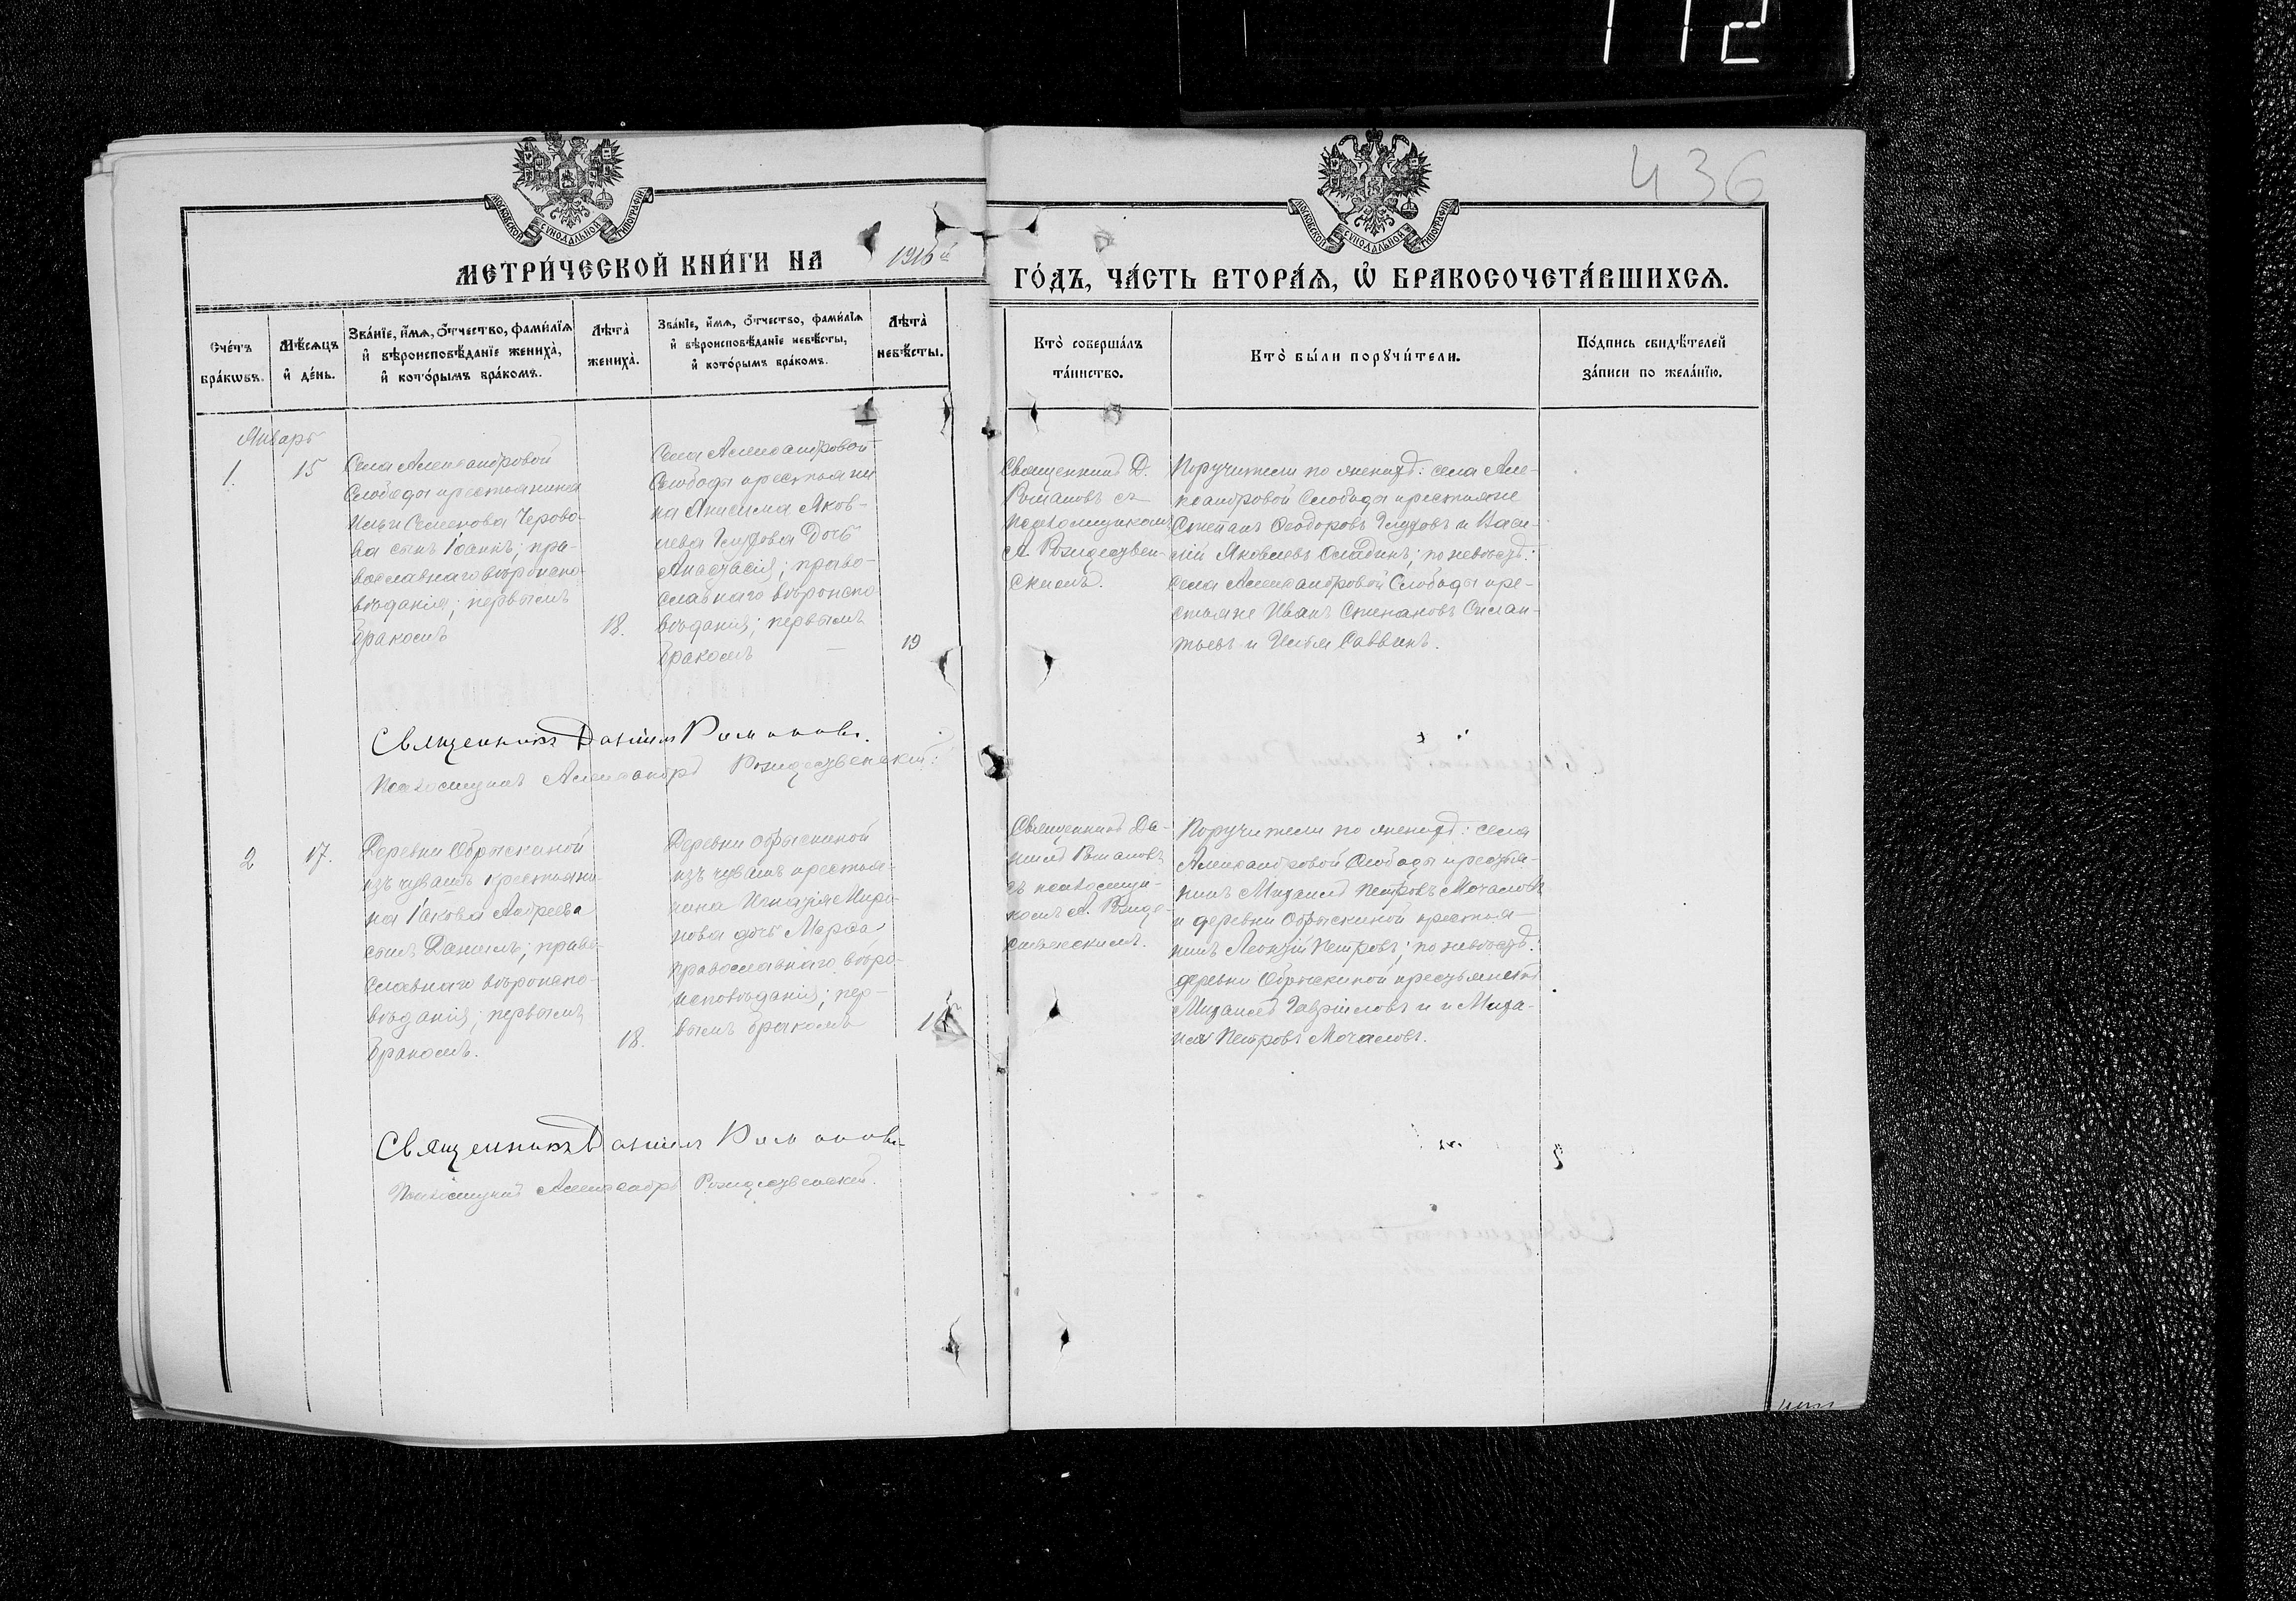 112
436
МОСКОВСКОЙ СѴНОДАЛЬНОЙ ТИПОГРАФІИ
МОСКОВСКОЙ СѴНОДАЛЬНОЙ ТИПОГРАФІИ
МЕТРИ́ЧЕСКОЙ КНИ́ГИ НА 1916 й
ГО́ДЪ, ЧА́СТЬ ВТОРА́Ѧ, Ѡ҆ БРАКОСОЧЕТА́ВШИХСѦ.
Сче́тъ бра́кѡвъ.
Мѣ́сѧцъ и҆ де́нь.
Зва́нїе, и҆́мѧ, ѻ҆́тчество, фами́лїѧ и҆ вѣроисповѣ́данїе жениха̀, и҆ кото́рымъ бра́комъ.
Лѣ́та жениха̀.
Зва́нїе, и҆́мѧ, ѻ҆́тчество, фами́лїѧ и҆ вѣроисповѣ́данїе невѣ́сты, и҆ кото́рымъ бра́комъ.
Лѣ́та невѣ́сты.
Кто̀ соверша́лъ та́инство.
Кто̀ бы́ли порꙋчи́тели.
По́дпись свидѣ́телей за́писи по жела́нїю.
Январь
1.
15
Села Александровой
Слободы крестьянина
Ильи Семенова
сынъ Іоаннъ; пра-
вославнаго вѣроиспо-
вѣданія; первымъ
бракомъ
18.
Села Александровой
Слободы крестьяни
на Анисима Яков-
лева Глухова дочь
Анастасія; право-
славнаго вѣроиспо
вѣданія; первымъ
бракомъ
19
Священникъ Д.
Романовъ съ
псаломщикомъ
А. Рождествен-
скимъ.
Поручители по женихѣ: села Але-
ксандровой Слободы крестьяне
Степанъ Ѳеодоровъ Глуховъ и Васи-
лій Яковлевъ Оладинъ; по невѣстѣ:
села Александровой Слободы кре-
стьяне Иванъ Степановъ Силан-
тьевъ и Илья Саввинъ.
Священникъ Даніилъ Романовъ.
Псаломщикъ Александръ Рождественскій.
2
17.
Деревни Обрыскиной
изъ чувашъ крестьяни
на Іакова Андреева
сынъ Даніилъ; право
славнаго вѣроиспо-
вѣданія; первымъ
бракомъ.
18.
Деревни Обрыскиной
изъ чувашъ крестья-
нина Игнатія Миро-
нова дочь Марѳа;
православнаго вѣро-
исповѣданія; пер-
вымъ бракомъ
Священникъ Да-
ніилъ Романовъ
съ псаломщи-
комъ А. Рожде-
ственскимъ.
Поручители по женихѣ: села
Александровой Слободы крестья-
нинъ Михаилъ Петровъ Мочаловъ
и деревни Обрыскиной крестья-
нинъ Леонтій Петровъ; по невѣстѣ:
деревни Обрыскиной крестьяне
Михаилъ Гавріиловъ и и Миха-
илъ Петровъ Мочаловъ.
Священникъ Даніилъ Романовъ
Псаломщикъ Александръ Рождественскій.